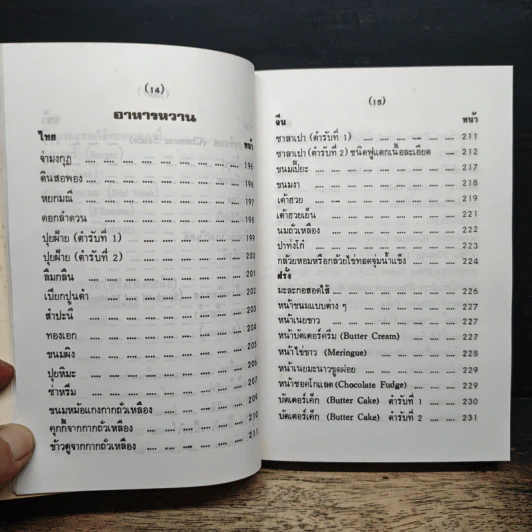 (14)
อาหารหวาน
ไทย หน้า
จ่ามงกุฎ .... .... .... .... .... .... .... 195
ดินสอพอง .... .... .... .... .... .... .... 196
หยกมณี .... .... .... .... .... .... .... 197
ดอกลำดวน .... .... .... .... .... .... .... 198
ปุยฝ้าย (ตำรับที่ 1) .... .... .... .... .... 199
ปุยฝ้าย (ตำรับที่ 2) .... .... .... .... .... 200
ลืมกลืน .... .... .... .... .... .... .... 201
เปียกปูนดำ .... .... .... .... .... .... .... 202
สำปะนี .... .... .... .... .... .... .... 203
ทองเอก .... .... .... .... .... .... .... 204
ขนมผิง .... .... .... .... .... .... .... 205
ปุยหิมะ .... .... .... .... .... .... .... 206
ซ่าหริ่ม .... .... .... .... .... .... .... 208
ขนมหม้อแกงกากถั่วเหลือง .... .... .... .... 209
คุกกี้จากกากถั่วเหลือง .... .... .... .... 210
ข้าวตูจากกากถั่วเหลือง .... .... .... .... 211
(15)
จีน หน้า
ซาลาเปา (ตำรับที่ 1) .... .... .... .... .... 211
ซาลาเปา (ตำรับที่ 2) ชนิดฟูแตกเนื้อละเอียด .... .... 212
ขนมเปี๊ยะ .... .... .... .... .... .... .... 217
ขนมงา .... .... .... .... .... .... .... 218
เต้าฮวย .... .... .... .... .... .... .... 219
เต้าฮวยเย็น .... .... .... .... .... .... .... 221
นมถั่วเหลือง .... .... .... .... .... .... .... 222
ปาท่งโก๋ .... .... .... .... .... .... .... 223
กล้วยหอมหรือกล้วยไข่ทอดจุ่มน้ำแข็ง .... .... .... 224
ฝรั่ง
มะละกอสอดไส้ .... .... .... .... .... .... 226
หน้าขนมแบบต่าง ๆ .... .... .... .... .... 227
หน้าเนยขาว .... .... .... .... .... .... 227
หน้าบัตเตอร์ครีม (Butter Cream) .... .... .... 227
หน้าไข่ขาว (Meringue) .... .... .... .... 228
หน้าเนยมะนาวขูดฝอย .... .... .... .... .... 229
หน้าชอคโกแลต (Chocolate Fudge) .... .... .... 229
บัตเตอร์เค้ก (Butter Cake) ตำรับที่ 1 .... .... 230
บัตเตอร์เค้ก (Butter Cake) ตำรับที่ 2 .... .... 231